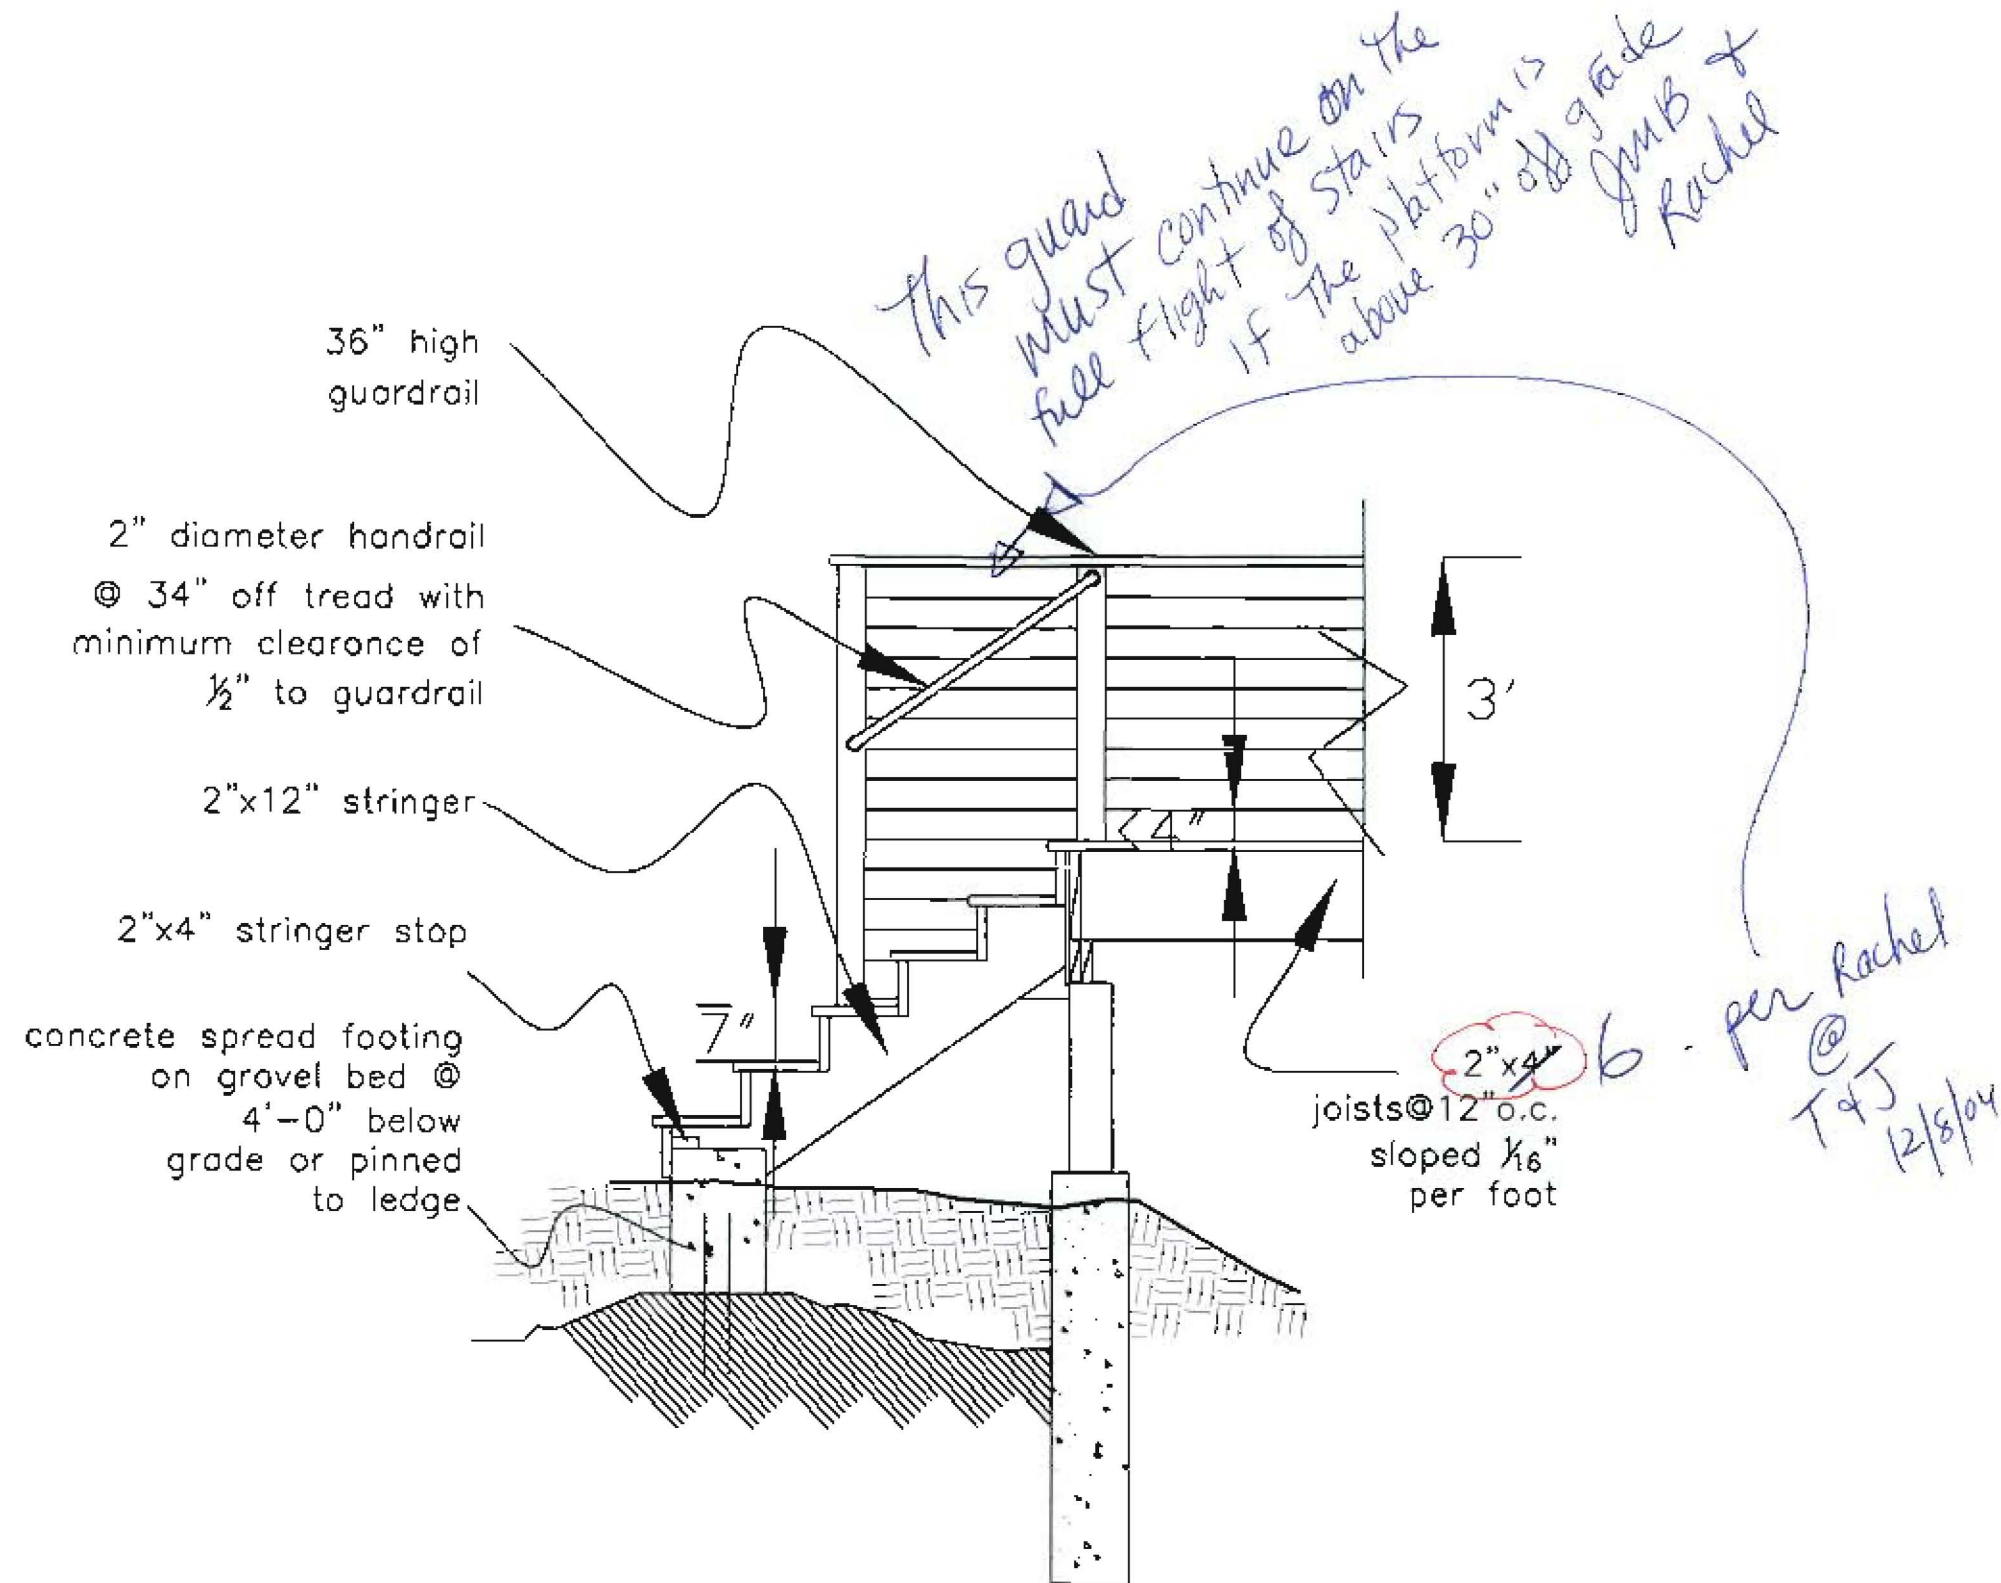 This guard
must continue on the
full flight of stairs
if the platform is
above 30" off grade
JMB &
Rachel
36" high
guardrail
2" diameter handrail
@ 34" off tread with
minimum clearance of
½" to guardrail
2"x12" stringer
2"x4" stringer stop
concrete spread footing
on gravel bed @
4'-0" below
grade or pinned
to ledge
7"
4"
3'
2"x4" 6 - per Rachel
@
T&J
12/8/04
joists@12"o.c.
sloped 1/16"
per foot